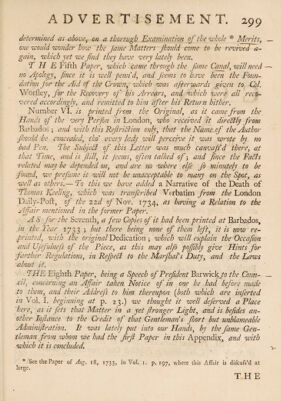 ADVERTISEMENT. 299
determined as above, on a thorough Examination of the whole * Merits,
one would wonder how the same Matters should come to be revived a-
gain, which yet we find they have very lately been.
THE Fifth Paper, which came through the same Canal, will need
no Apology, since it is well penn'd, and seems to have been the Foun-
dation for the Aid of the Crown, which was afterwards given to Col.
Worsley, for the Recovery of his Arrears, and which were all reco-
vered accordingly, and remitted to him after his Return hither.
Number VI. is printed from the Original, as it came from the
Hands of the very Person in London, who received it directly from
Barbados; and with this Restriction only, that the Name of the Author
should be concealed, tho' every body will perceive it was wrote by no
bad Pen. The Subject of this Letter was much canvass'd there, at
that Time, and is still, it seems, often talked of; and since the Facts
related may be depended on, and are no where else so minutely to be
found, we presume it will not be unacceptable to many on the Spot, as
well as others.—To this we have added a Narrative of the Death of
Thomas Keeling, which was transcribed Verbatim from the London
Daily-Post, of the 22d of Nov. 1734, as having a Relation to the
Affair mentioned in the former Paper.
AS for the Seventh, a few Copies of it had been printed at Barbados,
in the Year 1733; but there being none of them left, it is now re-
printed, with the original Dedication, which will explain the Occasion
and Usefulness of the Piece, as this may also possibly give Hints for
further Regulations, in Respect to the Marshal's Duty, and the Laws
about it.
THE Eighth Paper, being a Speech of President Barwick, to the Coun-
cil, concerning an Affair taken Notice of in one he had before made
to them, and their Address to him thereupon (both which are inserted
in Vol. I. beginning at p. 23.) we thought it well deserved a Place
here, as it sets that Matter in a yet stronger Light, and is besides an-
other Instance to the Credit of that Gentleman's short but unblameable
Administration. It was lately put into our Hands, by the same Gen-
tleman from whom we had the first Paper in this Appendix, and with
which it is concluded.
* See the Paper of Aug. 18, 1733, in Vol. I. p. 197, where this Affair is discuss'd at
large.
THE